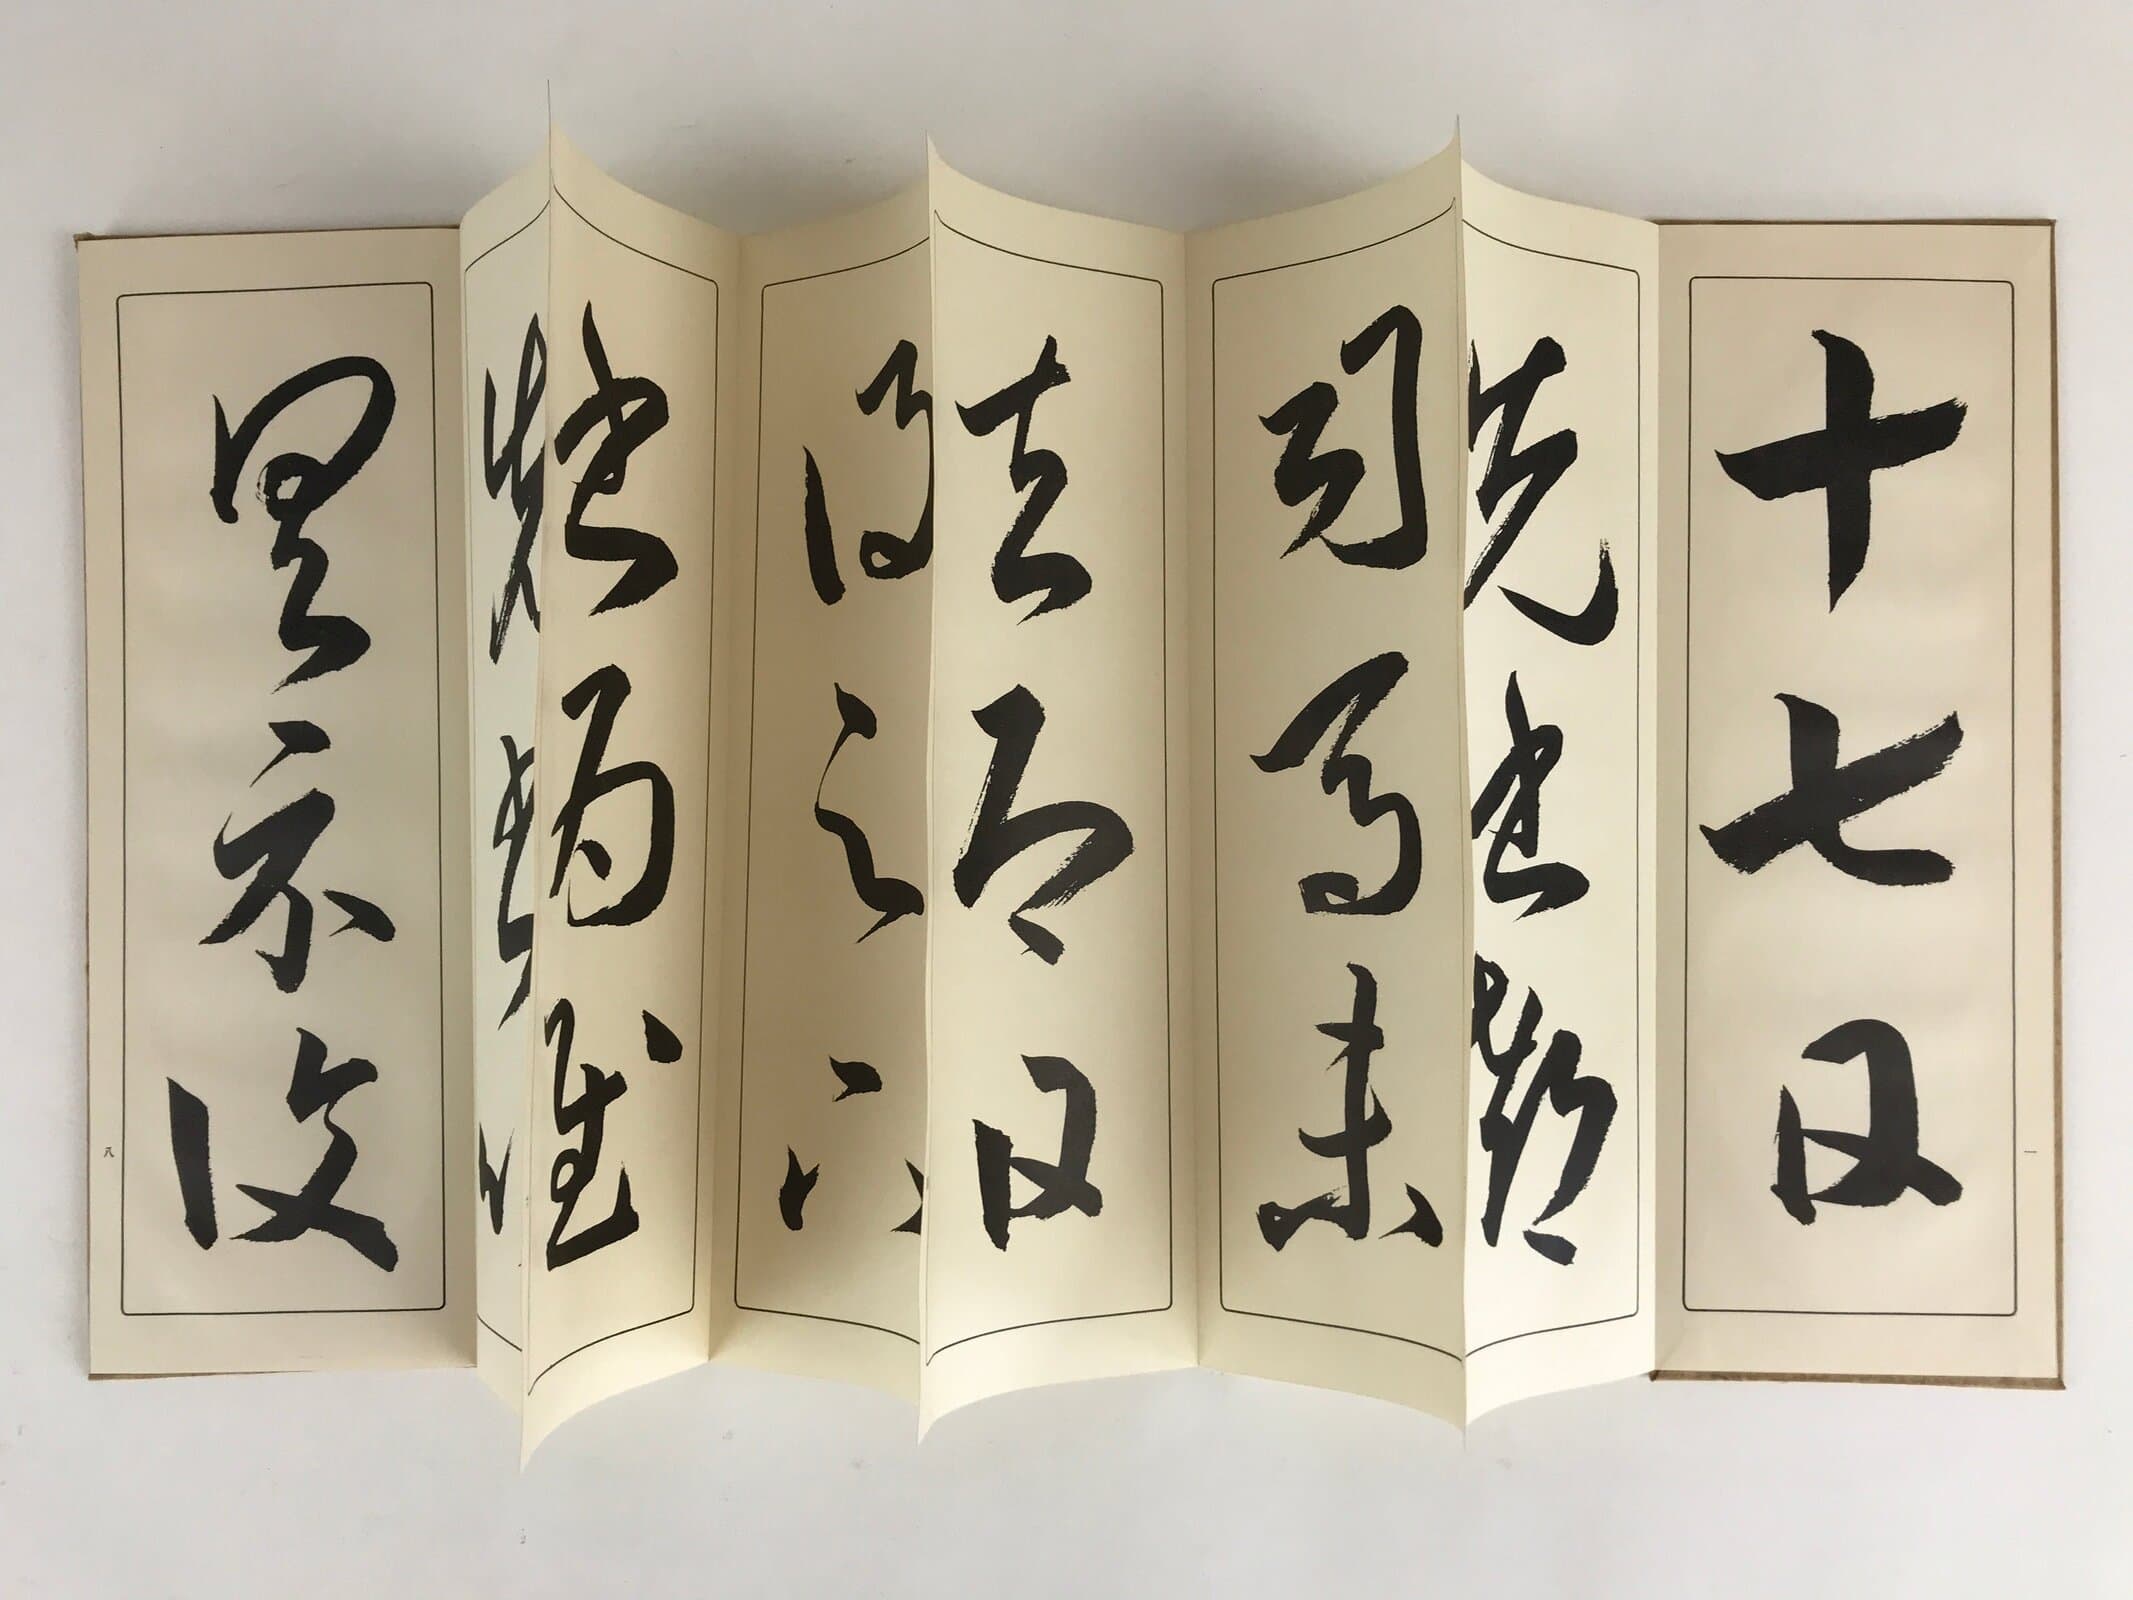 十七日
一
先書郗
司馬未
去即日
得足下
書為慰
先書以
具示復
八